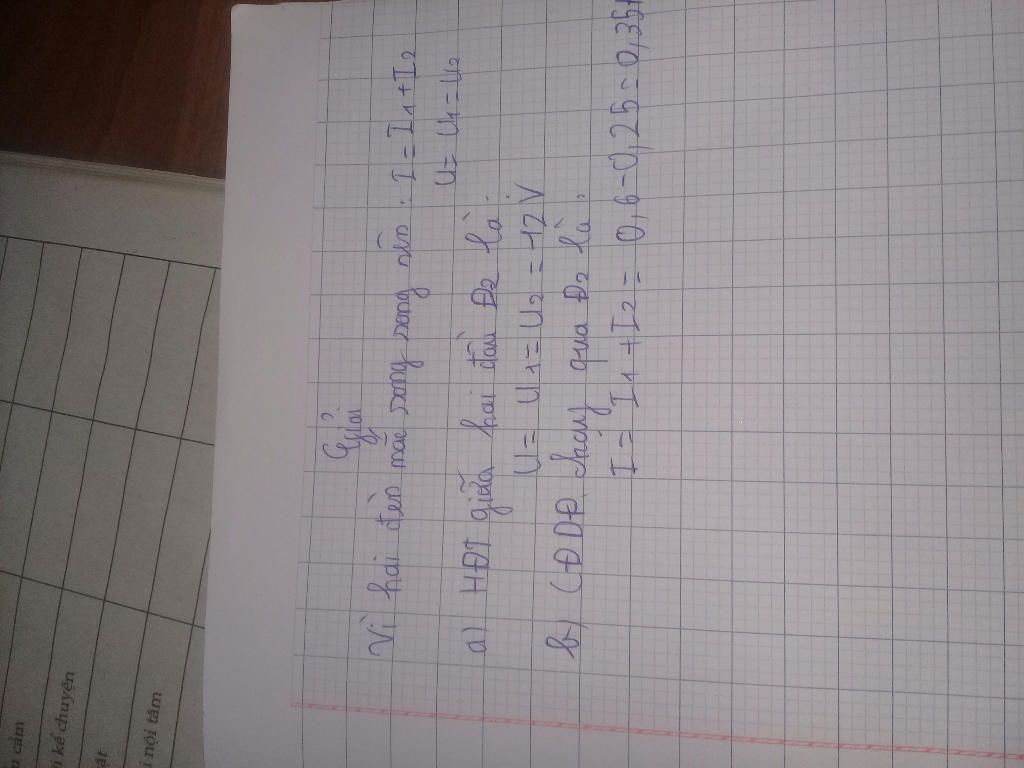 Giải
Vì hai đèn mắc song song nên : I = I1 + I2
U = U1 = U2
a) HĐT giữa hai đầu Đ2 là :
U = U1 = U2 = 12 V
b) CĐDĐ chạy qua Đ2 là :
I = I1 + I2 = 0,6 - 0,25 = 0,35A
cảm
kể chuyện
nội tâm